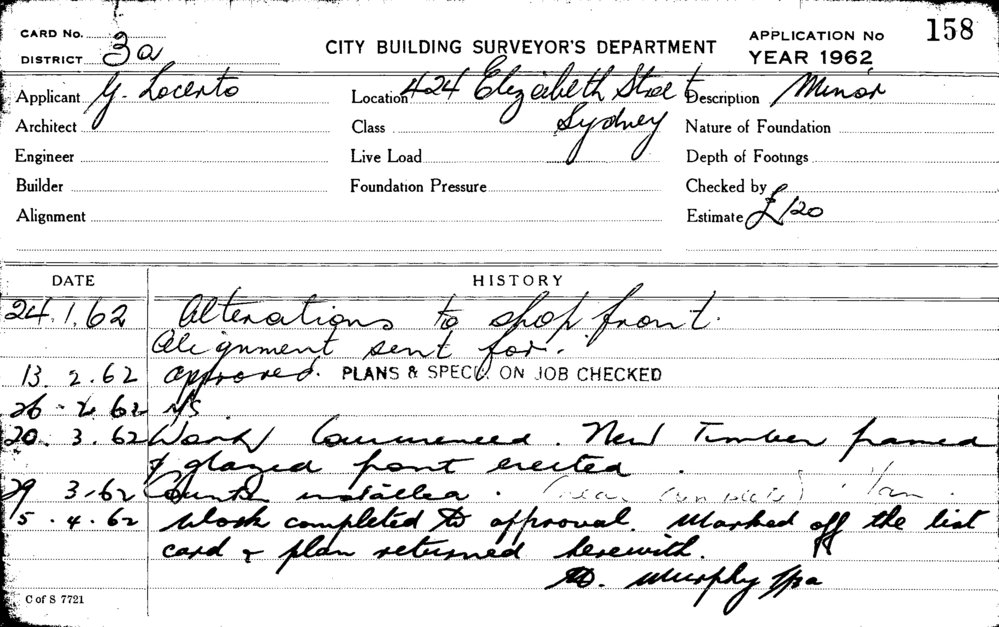 CARD No.
DISTRICT 3a
CITY BUILDING SURVEYOR'S DEPARTMENT
APPLICATION No 158
YEAR 1962
Applicant G. Locerto Location 424 Elizabeth Street Description Minor
Architect Class Sydney Nature of Foundation
Engineer Live Load Depth of Footings
Builder Foundation Pressure Checked by
Alignment Estimate £120
DATE HISTORY
24.1.62 Alterations to shop front.
Alignment sent for.
13.2.62 approved. PLANS & SPECS. ON JOB CHECKED
26.2.62 N/S.
20.3.62 Work Commenced. New Timber framed
& glazed front erected.
29.3.62 installed.
5.4.62 Work completed to approval. Marked off the list
card & plan returned herewith.
Murphy
C of S 7721